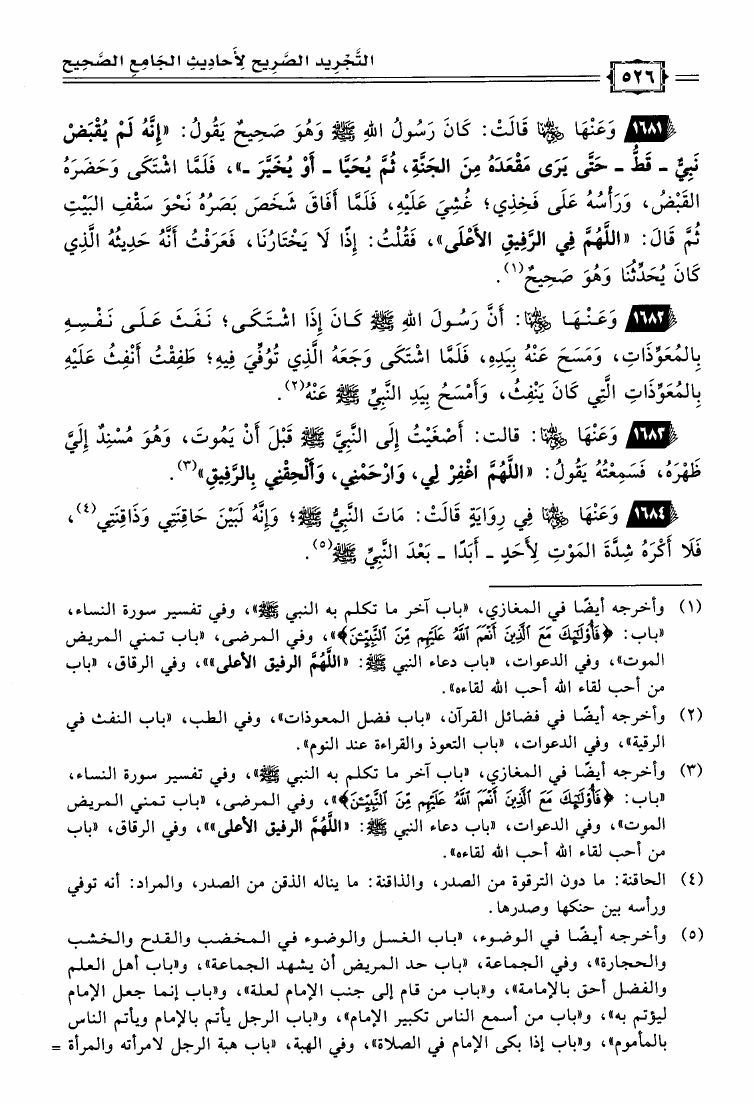 التَّجْرِيد الصَّرِيح لِأَحَادِيثِ الجَامِعِ الصَّحِيح
٥٢٦
١٦٨١ وَعَنْهَا ﵂ قَالَتْ: كَانَ رَسُولُ اللهِ ﷺ وَهُوَ صَحِيحٌ يَقُولُ: «إِنَّهُ لَمْ يُقْبَضْ
نَبِيٌّ ـ قَطُّ ـ حَتَّى يَرَى مَقْعَدَهُ مِنَ الجَنَّةِ، ثُمَّ يُحَيَّا ـ أَوْ يُخَيَّرَ ـ»، فَلَمَّا اشْتَكَى وَحَضَرَهُ
القَبْضُ، وَرَأْسُهُ عَلَى فَخِذِي؛ غُشِيَ عَلَيْهِ، فَلَمَّا أَفَاقَ شَخَصَ بَصَرُهُ نَحْوَ سَقْفِ البَيْتِ
ثُمَّ قَالَ: «اللَّهُمَّ فِي الرَّفِيقِ الأَعْلَى»، فَقُلْتُ: إِذًا لَا يَخْتَارُنَا، فَعَرَفْتُ أَنَّهُ حَدِيثُهُ الَّذِي
كَانَ يُحَدِّثُنَا وَهُوَ صَحِيحٌ(١).
١٦٨٢ وَعَنْهَا ﵂: أَنَّ رَسُولَ اللهِ ﷺ كَانَ إِذَا اشْتَكَى؛ نَفَثَ عَلَى نَفْسِهِ
بِالمُعَوِّذَاتِ، وَمَسَحَ عَنْهُ بِيَدِهِ، فَلَمَّا اشْتَكَى وَجَعَهُ الَّذِي تُوُفِّيَ فِيهِ؛ طَفِقْتُ أَنْفِثُ عَلَيْهِ
بِالمُعَوِّذَاتِ الَّتِي كَانَ يَنْفِثُ، وَأَمْسَحُ بِيَدِ النَّبِيِّ ﷺ عَنْهُ(٢).
١٦٨٣ وَعَنْهَا ﵂: قالت: أَصْغَيْتُ إِلَى النَّبِيِّ ﷺ قَبْلَ أَنْ يَمُوتَ، وَهُوَ مُسْنِدٌ إِلَيَّ
ظَهْرَهُ، فَسَمِعْتُهُ يَقُولُ: «اللَّهُمَّ اغْفِرْ لِي، وَارْحَمْنِي، وَأَلْحِقْنِي بِالرَّفِيقِ»(٣).
١٦٨٤ وَعَنْهَا ﵂ فِي رِوَايَةٍ قَالَتْ: مَاتَ النَّبِيُّ ﷺ؛ وَإِنَّهُ لَبَيْنَ حَاقِنَتِي وَذَاقِنَتِي(٤)،
فَلَا أَكْرَهُ شِدَّةَ المَوْتِ لِأَحَدٍ ـ أَبَدًا ـ بَعْدَ النَّبِيِّ ﷺ(٥).
(١) وأخرجه أيضًا في المغازي، «باب آخر ما تكلم به النبي ﷺ»، وفي تفسير سورة النساء،
«باب: ﴿فَأُوْلَٰٓئِكَ مَعَ ٱلَّذِينَ أَنۡعَمَ ٱللَّهُ عَلَيۡهِم مِّنَ ٱلنَّبِيِّـۧنَ﴾»، وفي المرضى، «باب تمني المريض
الموت»، وفي الدعوات، «باب دعاء النبي ﷺ: «اللَّهُمَّ الرفيق الأعلى»»، وفي الرقاق، «باب
من أحب لقاء الله أحب الله لقاءه».
(٢) وأخرجه أيضًا في فضائل القرآن، «باب فضل المعوذات»، وفي الطب، «باب النفث في
الرقية»، وفي الدعوات، «باب التعوذ والقراءة عند النوم».
(٣) وأخرجه أيضًا في المغازي، «باب آخر ما تكلم به النبي ﷺ»، وفي تفسير سورة النساء،
«باب: ﴿فَأُوْلَٰٓئِكَ مَعَ ٱلَّذِينَ أَنۡعَمَ ٱللَّهُ عَلَيۡهِم مِّنَ ٱلنَّبِيِّـۧنَ﴾»، وفي المرضى، «باب تمني المريض
الموت»، وفي الدعوات، «باب دعاء النبي ﷺ: «اللَّهُمَّ الرفيق الأعلى»»، وفي الرقاق، «باب
من أحب لقاء الله أحب الله لقاءه».
(٤) الحاقنة: ما دون الترقوة من الصدر، والذاقنة: ما يناله الذقن من الصدر، والمراد: أنه توفي
ورأسه بين حنكها وصدرها.
(٥) وأخرجه أيضًا في الوضوء، «باب الغسل والوضوء في المخضب والقدح والخشب
والحجارة»، وفي الجماعة، «باب حد المريض أن يشهد الجماعة»، و«باب أهل العلم
والفضل أحق بالإمامة»، و«باب من قام إلى جنب الإمام لعلة»، و«باب إنما جعل الإمام
ليؤتم به»، و«باب من أسمع الناس تكبير الإمام»، و«باب الرجل يأتم بالإمام ويأتم الناس
بالمأموم»، و«باب إذا بكى الإمام في الصلاة»، وفي الهبة، «باب هبة الرجل لامرأته والمرأة =